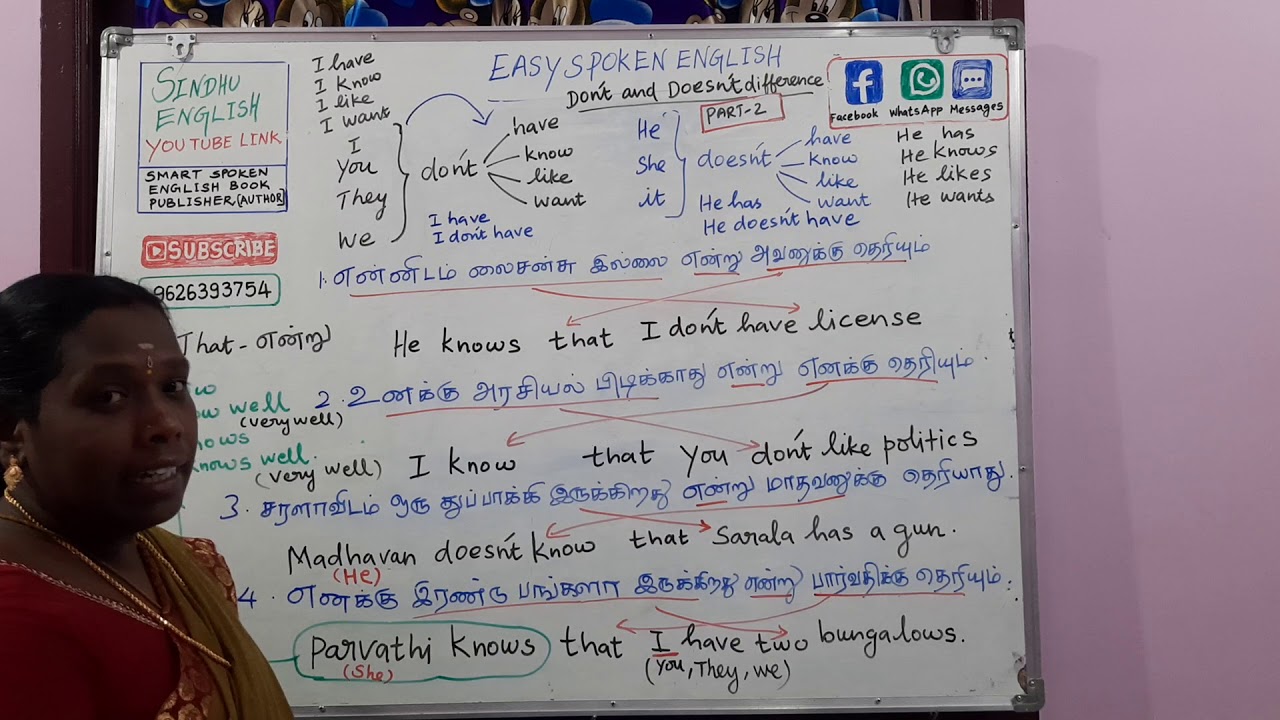 SINDHU
ENGLISH
YOUTUBE LINK
SMART SPOKEN
ENGLISH BOOK
PUBLISHER, (AUTHOR)
SUBSCRIBE
9626393754
I have
I know
I like
I want
EASY SPOKEN ENGLISH
Don't and Doesn't difference
PART-2
Facebook WhatsApp Messages
I
You
They
We
don't
have
know
like
want
I have
I don't have
He
She
it
doesn't
have
know
like
want
He has
He doesn't have
He has
He knows
He likes
He wants
1. என்னிடம் லைசன்சு இல்லை என்று அவனுக்கு தெரியும்
That - என்று
He knows that I don't have license
2. உனக்கு அரசியல் பிடிக்காது என்று எனக்கு தெரியும்.
well
(very well)
I know that you don't like politics
knows well.
(very well)
3. சரளாவிடம் ஒரு துப்பாக்கி இருக்கிறது என்று மாதவனுக்கு தெரியாது.
Madhavan doesn't know that Sarala has a gun.
(He)
4. எனக்கு இரண்டு பங்களா இருக்கிறது என்று பார்வதிக்கு தெரியும்.
Parvathi knows that I have two bungalows.
(She)
(You, They, we)